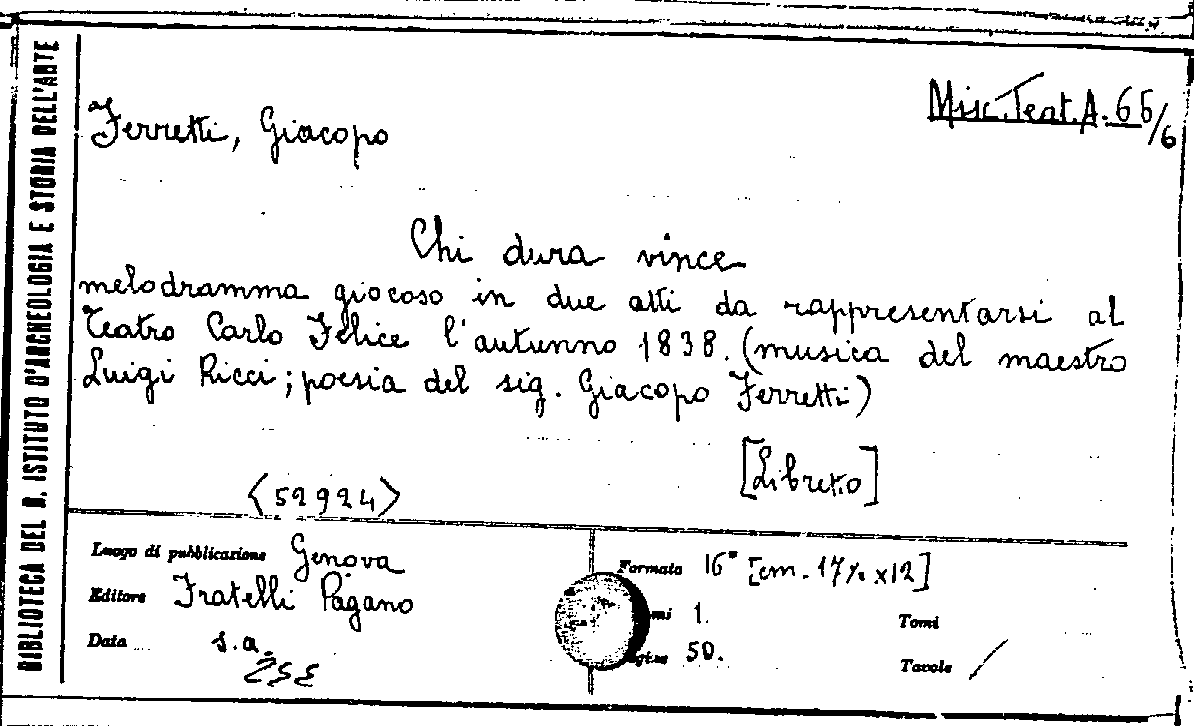 BIBLIOTECA DEL R. ISTITUTO D'ARCHEOLOGIA E STORIA DELL'ARTE
Misc. Teat. A. 65/6
Ferretti, Giacopo
Chi dura vince
melodramma giocoso in due atti da rappresentarsi al
Teatro Carlo Felice l'autunno 1838. (musica del maestro
Luigi Ricci; poesia del sig. Giacopo Ferretti)
[Libretto]
<52924>
Luogo di pubblicazione Genova
Editore Fratelli Pagano
Data s.a.
Formato 16° [cm. 17½ x12]
mi 1.
gine 50.
Tomi
Tavole /